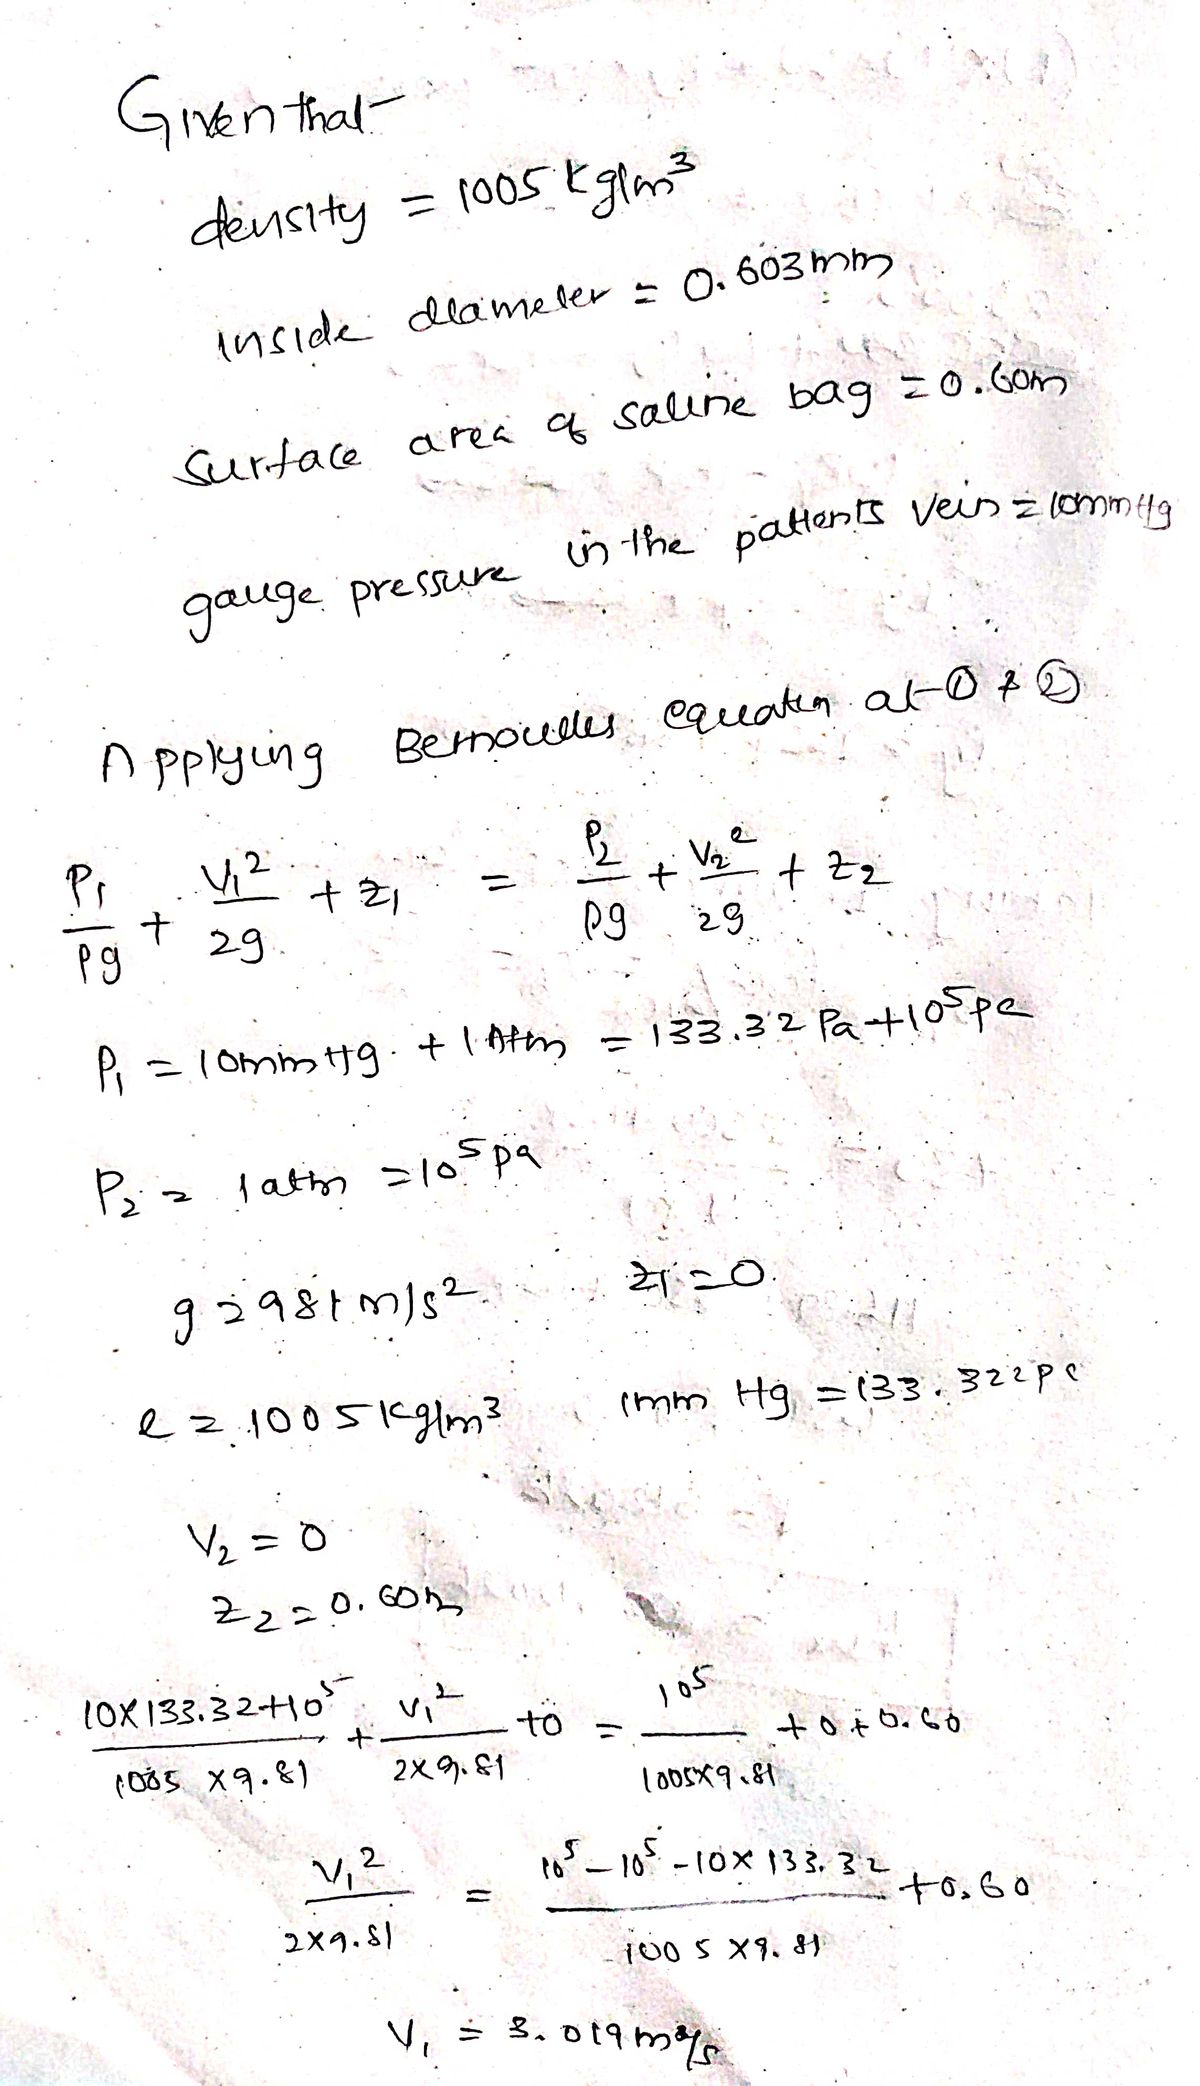 Given that
density = 1005 kg/m³
inside diameter = 0.603mm
Surface area of saline bag = 0.60m
gauge pressure in the patients vein = 10mmHg
Applying Bernoulles equation at ① & ②
P₁/ρg + V₁²/2g + z₁ = P₂/ρg + V₂²/2g + z₂
P₁ = 10mmHg + 1 Atm = 133.32 Pa + 10⁵ pa
P₂ = 1 atm = 10⁵ pa
g = 981 m/s² z₁ = 0
ρ = 1005 kg/m³ 1mm Hg = 133.322 pa
V₂ = 0
z₂ = 0.60m
(10X133.32+10⁵)/(1005 X9.81) + V₁²/(2X9.81) + 0 = 10⁵/(1005X9.81) + 0 + 0.60
V₁²/(2X9.81) = (10⁵ - 10⁵ - 10X 133.32)/(1005 X9.81) + 0.60
V₁ = 3.019 m/s